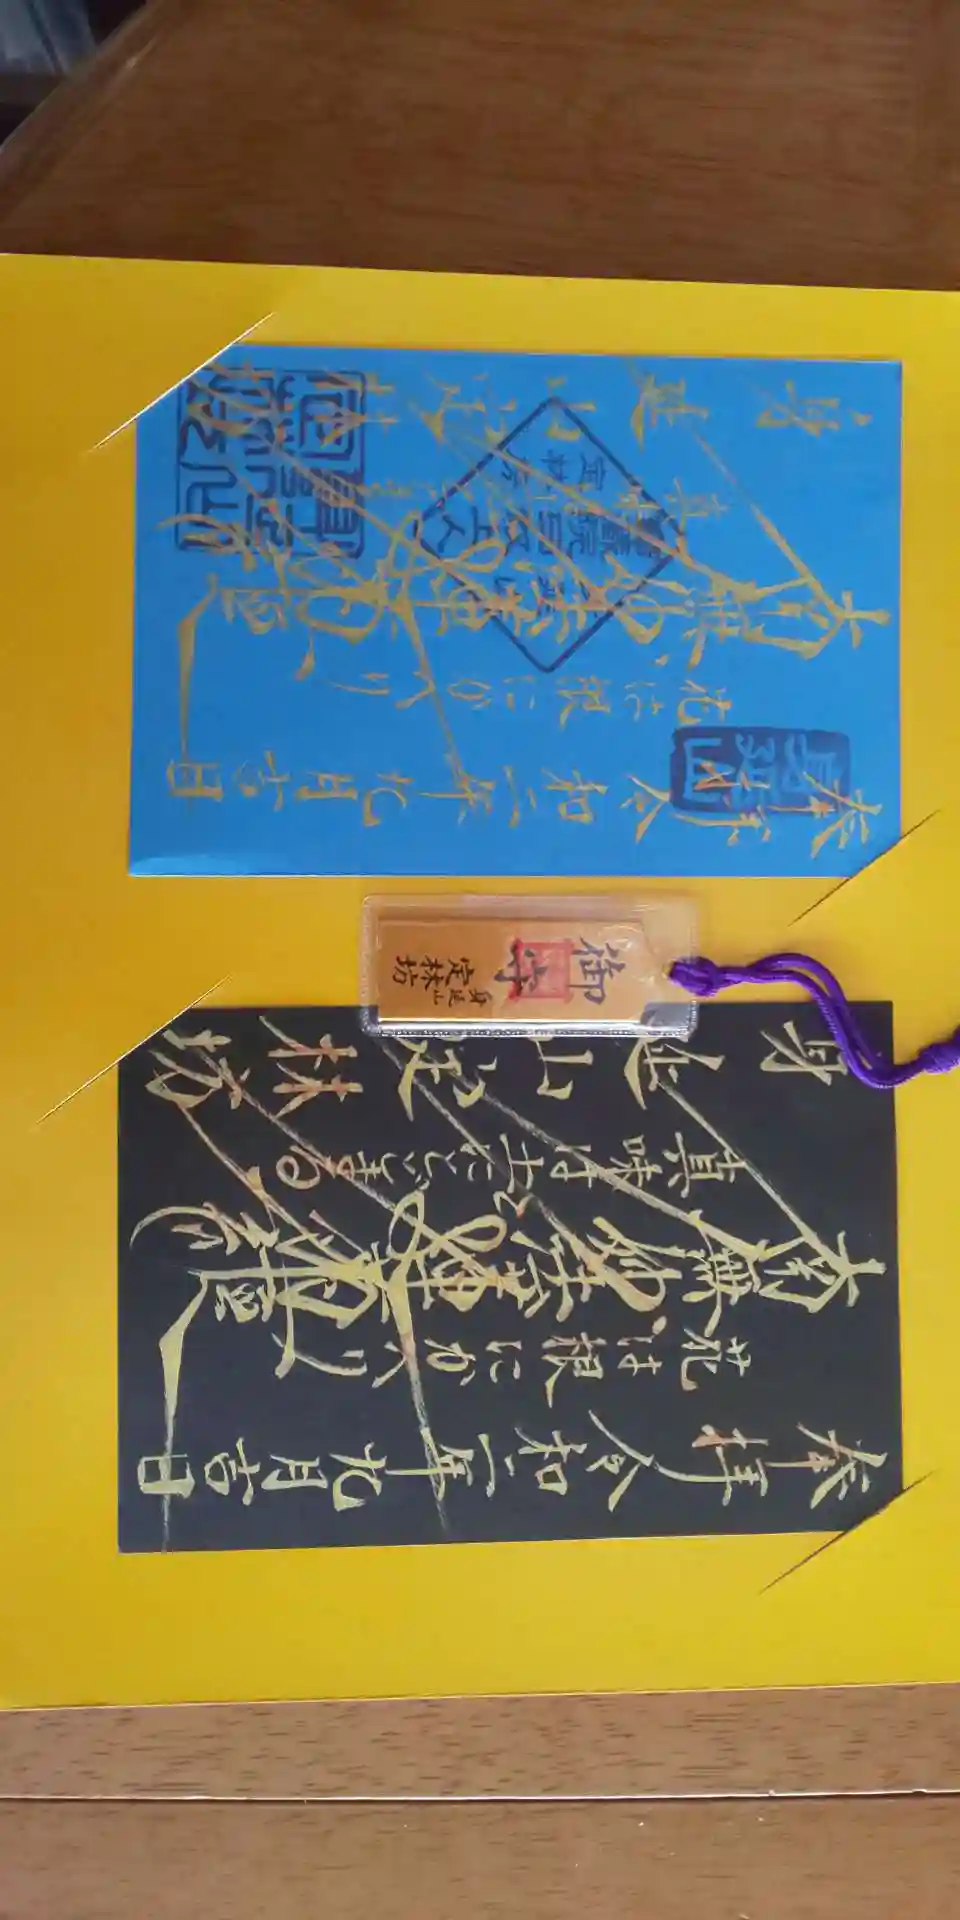 奉拝 令和二年九月吉日
花は根にかへり
南無妙法蓮華経
真味は土にとどまる
身延山定林坊
御守
身延山
定林坊
奉拝 令和二年九月吉日
身延山
花は根にかへり
南無妙法蓮華経
身延山定林坊
定林坊